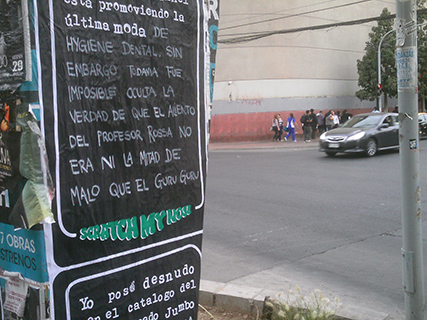 está promoviendo la
última moda DE
HYGIENE DENTAL. SIN
EMBARGO TODAVIA FUE
IMPOSIBLE OCULTA LA
VERDAD DE QUE EL ALIENTO
DEL PROFESOR ROSSA NO
ERA NI LA MITAD DE
MALO QUE EL GURU GURU
SCRATCH MY NOSE
Yo posé desnudo
en el catalogo del
Jumbo
29
7 OBRAS
ESTRENOS